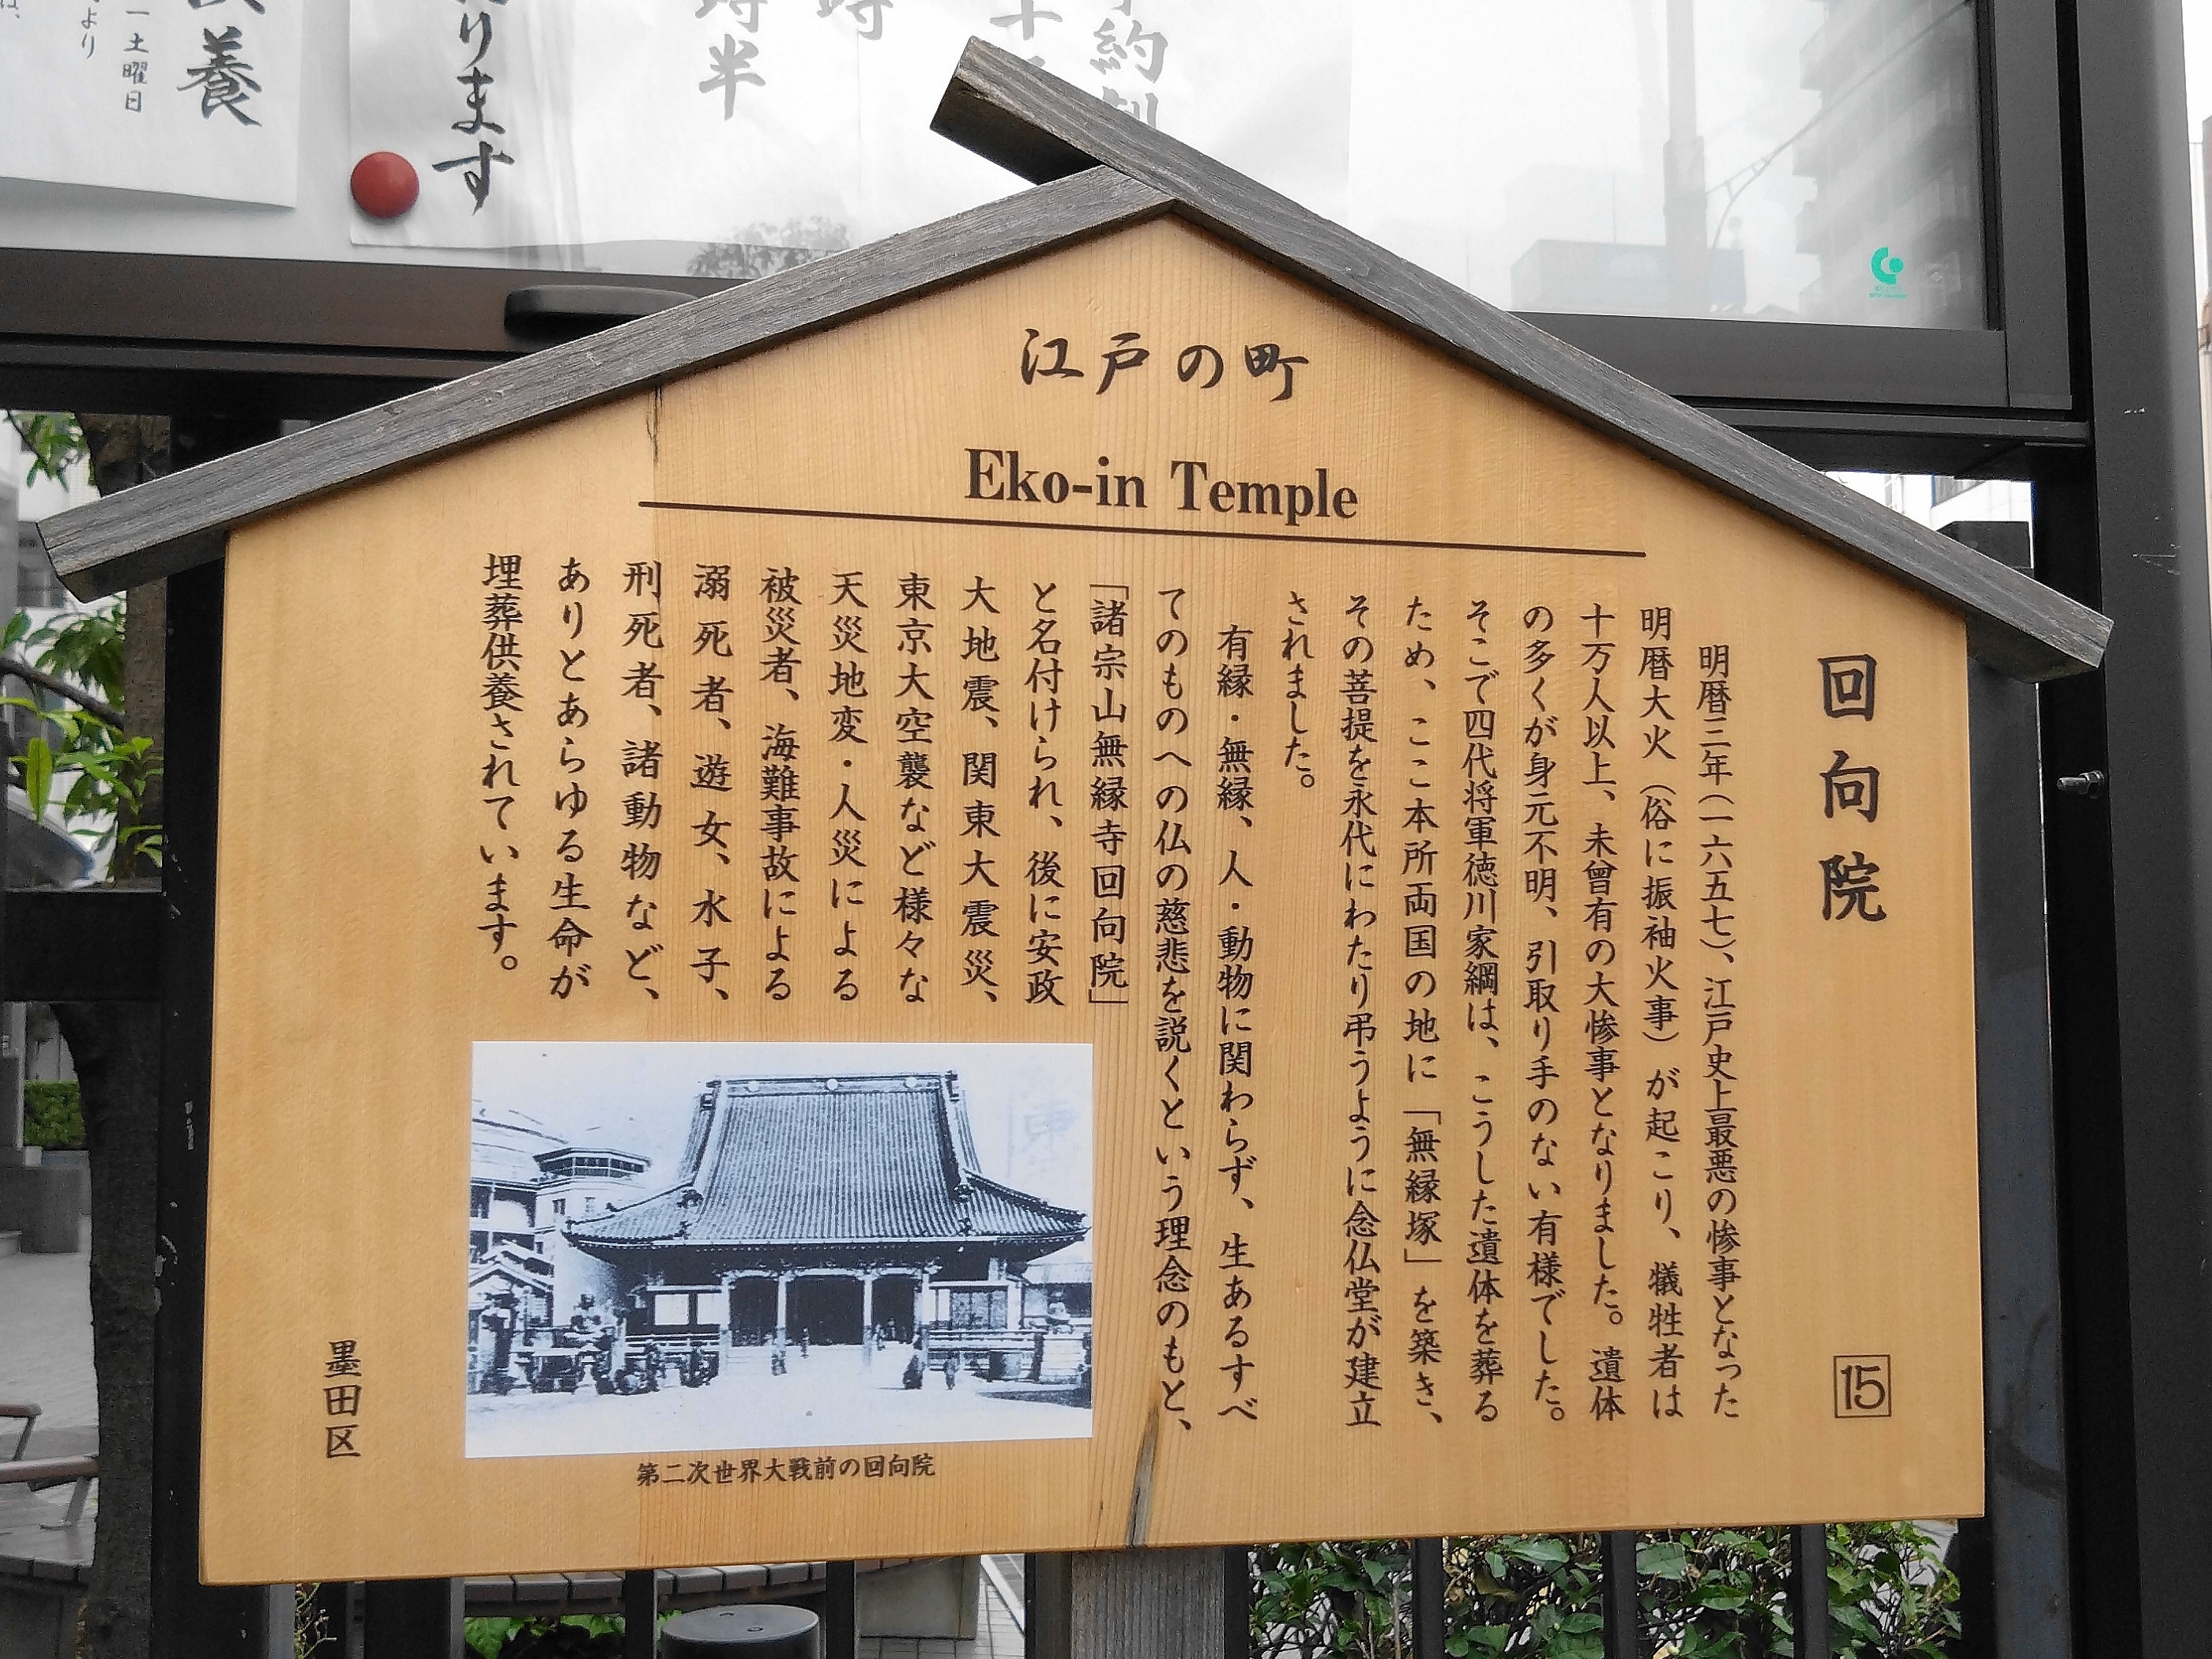 養
一土曜日
より
ります
時半
時
約
江戸の町
Eko-in Temple
回向院
15
明暦三年(一六五七)、江戸史上最悪の惨事となった
明暦大火(俗に振袖火事)が起こり、犠牲者は
十万人以上、未曾有の大惨事となりました。遺体
の多くが身元不明、引取り手のない有様でした。
そこで四代将軍徳川家綱は、こうした遺体を葬る
ため、ここ本所両国の地に「無縁塚」を築き、
その菩提を永代にわたり弔うように念仏堂が建立
されました。
有縁・無縁、人・動物に関わらず、生あるすべ
てのものへの仏の慈悲を説くという理念のもと、
「諸宗山無縁寺回向院」
と名付けられ、後に安政
大地震、関東大震災、
東京大空襲など様々な
天災地変・人災による
被災者、海難事故による
溺死者、遊女、水子、
刑死者、諸動物など、
ありとあらゆる生命が
埋葬供養されています。
第二次世界大戦前の回向院
墨田区